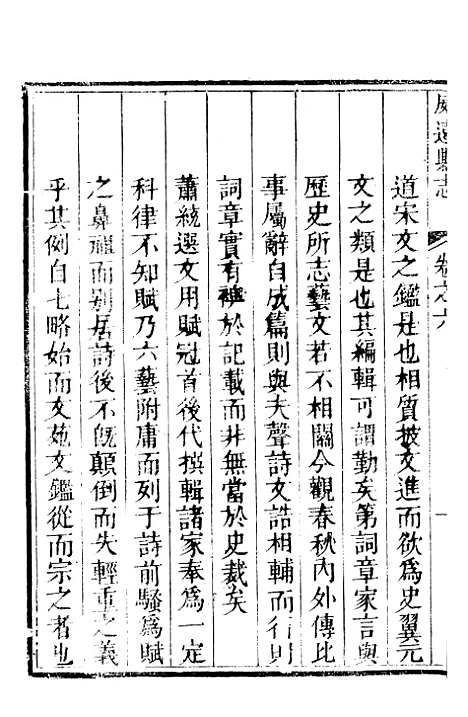 威遠縣志
卷之六
道宋文之鑑是也相質披文進而欲為史翼元
文之類是也其編輯可謂勤矣第詞章家言與
歷史所志藝文若不相關今觀春秋內外傳比
事屬辭自成篇則與夫聲詩文誥相輔而行則
詞章實有裨於記載而非無當於史裁矣
蕭統選文用賦冠首後代撰輯諸家奉為一定
科律不知賦乃六藝附庸而列于詩前騷為賦
之鼻祖而別居詩後不旣顛倒而失輕重之義
乎其例自七略始而文苑文鑑從而宗之者也